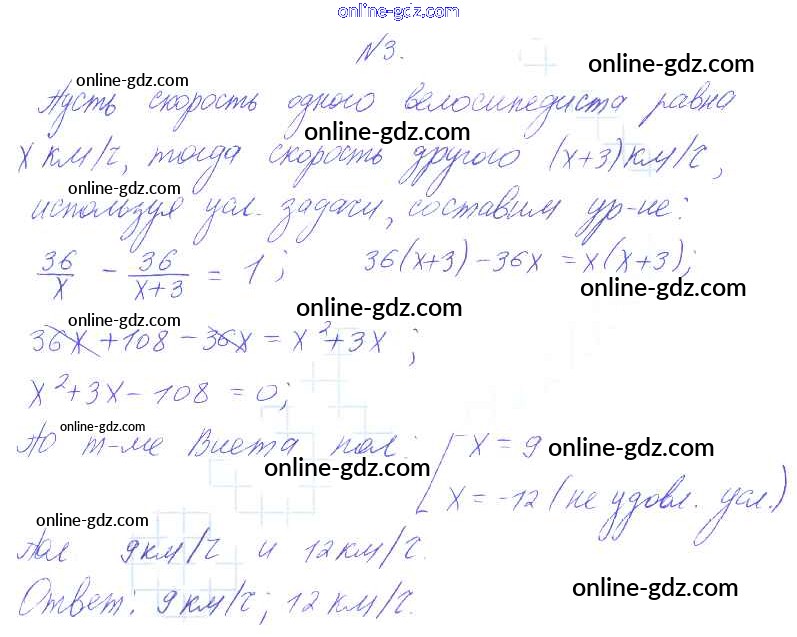 online-gdz.com
N3.
online-gdz.com
online-gdz.com
Пусть скорость одного велосипедиста равна
online-gdz.com
x км/ч, тогда скорость другого (x+3) км/ч,
online-gdz.com
используя усл. задачи, составим ур-ие:
36/x - 36/(x+3) = 1; 36(x+3) - 36x = x(x+3);
online-gdz.com
online-gdz.com
online-gdz.com
36x + 108 - 36x = x²+3x;
x²+3x - 108 = 0;
online-gdz.com
По т-ме Виета пол: [ x = 9
online-gdz.com
online-gdz.com
x = -12 (не удовл. усл.)
online-gdz.com
Пол 9 км/ч и 12 км/ч.
online-gdz.com
Ответ: 9 км/ч; 12 км/ч.